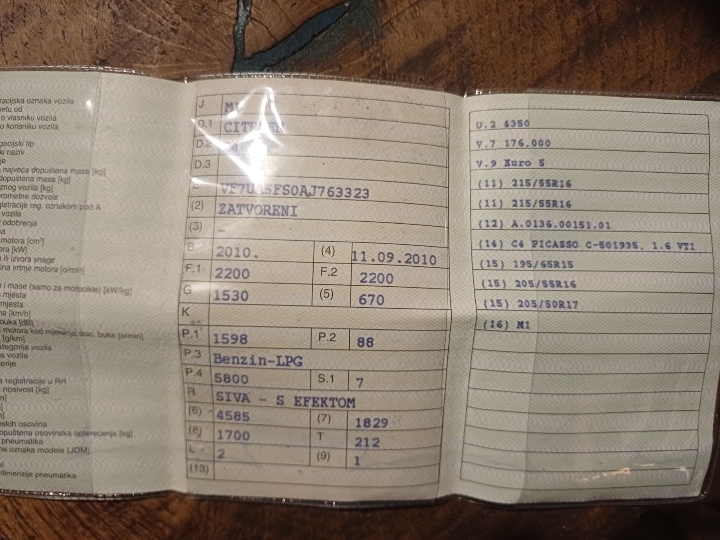 vozila
o vlasniku vozila
o korisniku vozila
tip
naziv
najveća dopuštena masa [kg]
masa [kg]
vozila [kg]
dozvole
reg. oznakom pod A
vozila
odobrenja
motora [cm³]
[kW]
ili izvora snage
vrtnje motora [o/min]
i mase (samo za motocikle) [kW/kg]
mjesta
mjesta
[km/h]
buka [dB]
[g/km]
vozila
vozila
registracije u RH
nosivost [kg]
osovina
osovinsko opterećenje [kg]
pneumatika
oznaka modela (JOM)
dimenzije pneumatika
J M1
D.1
D.2
D.3
ZATVORENI
(2)
(3) –
B 2010. (4) 11.09.2010
F.1 2200 F.2 2200
G 1530 (5) 670
K
P.1 1598 P.2 88
P.3 Benzin-LPG
P.4 5800 S.1 7
R SIVA – S EFEKTOM
(6) 4585 (7) 1829
(8) 1700 T 212
L 2 (9) 1
(13)
U.2 4350
V.7 176.000
V.9 Euro 5
(11) 215/55R16
(11) 215/55R16
(12) A.0136.00151.01
(14) C4 PICASSO C-501995, 1.6 VTI
(15) 195/65R15
(15) 205/55R16
(15) 205/50R17
(16) M1